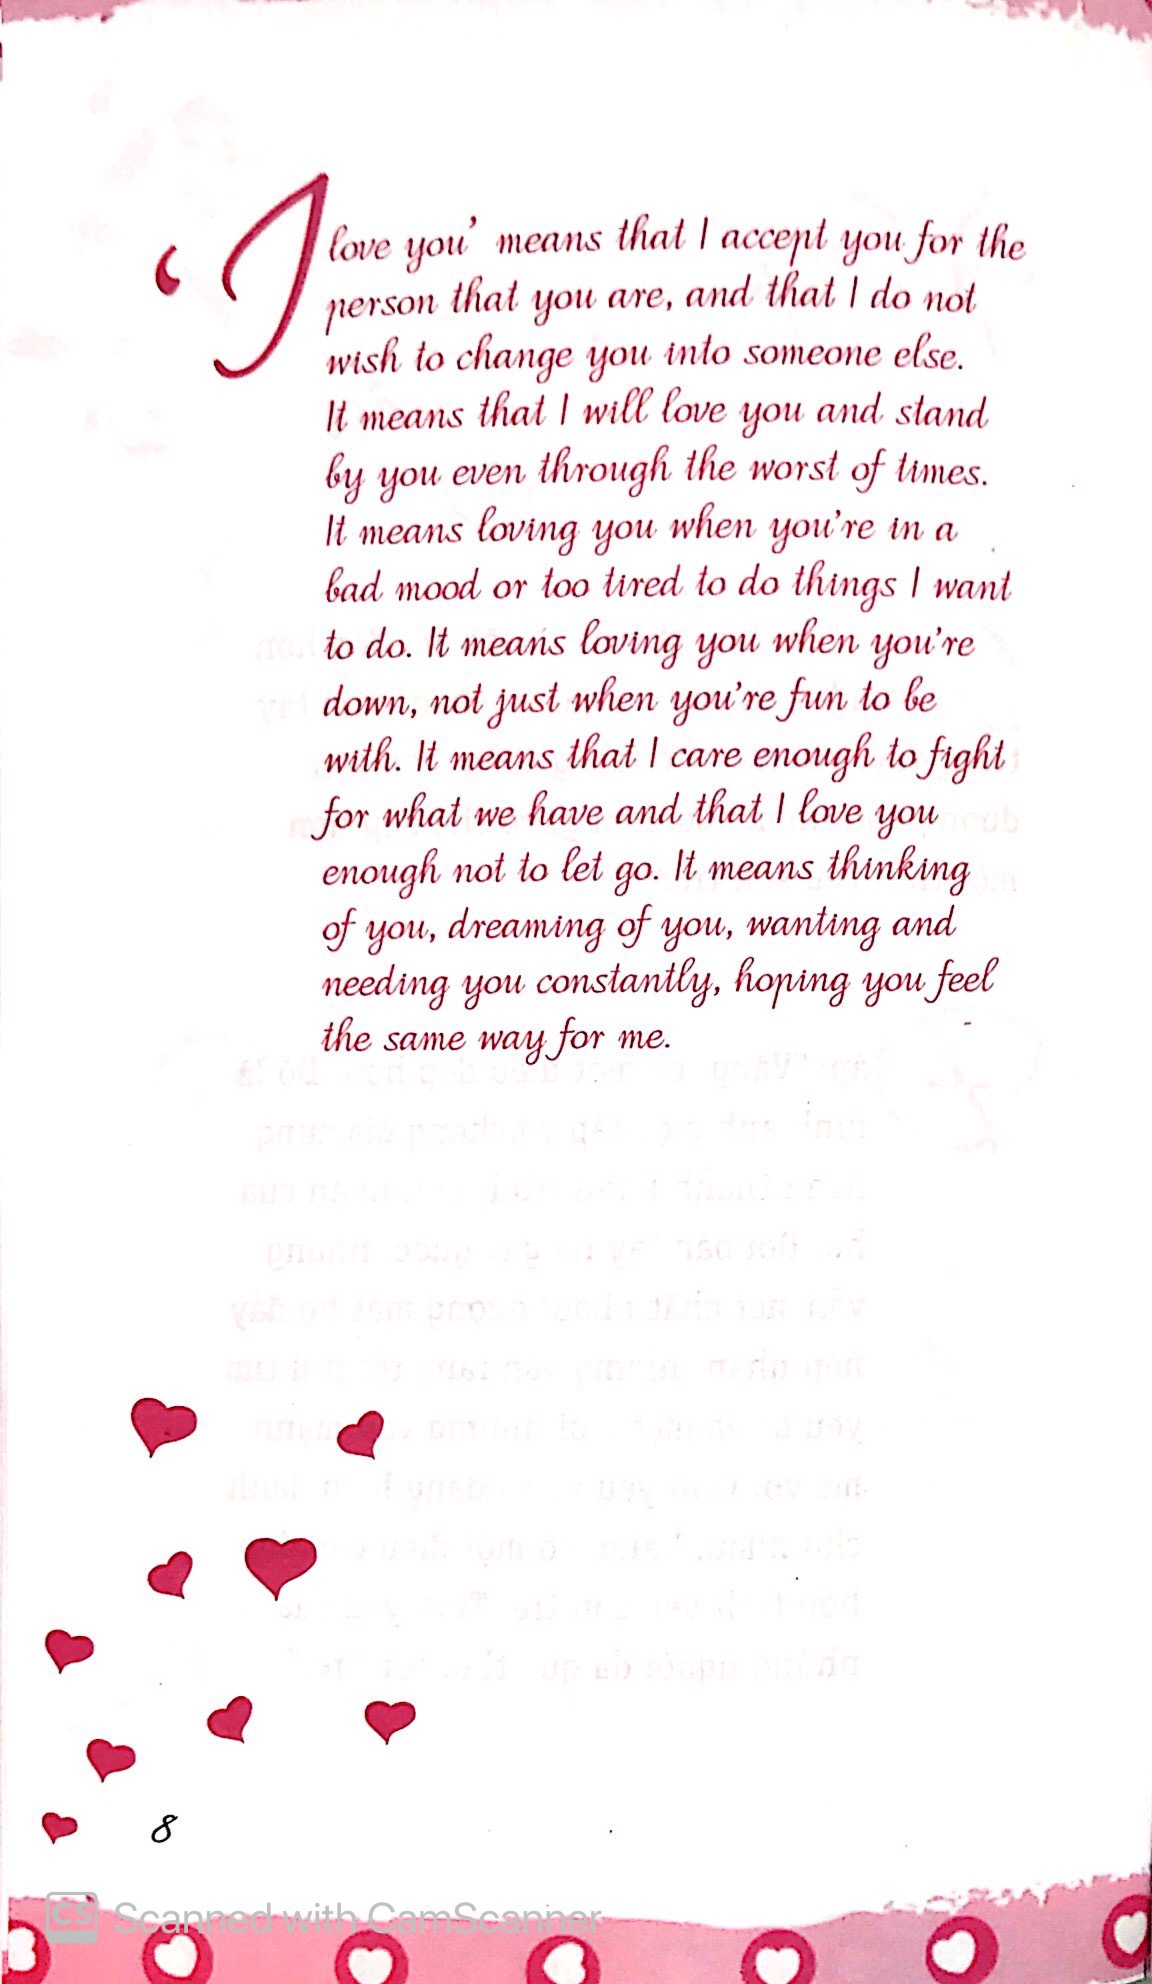 ‘I love you’ means that I accept you for the
person that you are, and that I do not
wish to change you into someone else.
It means that I will love you and stand
by you even through the worst of times.
It means loving you when you’re in a
bad mood or too tired to do things I want
to do. It means loving you when you’re
down, not just when you’re fun to be
with. It means that I care enough to fight
for what we have and that I love you
enough not to let go. It means thinking
of you, dreaming of you, wanting and
needing you constantly, hoping you feel
the same way for me.
8
CS Scanned with CamScanner